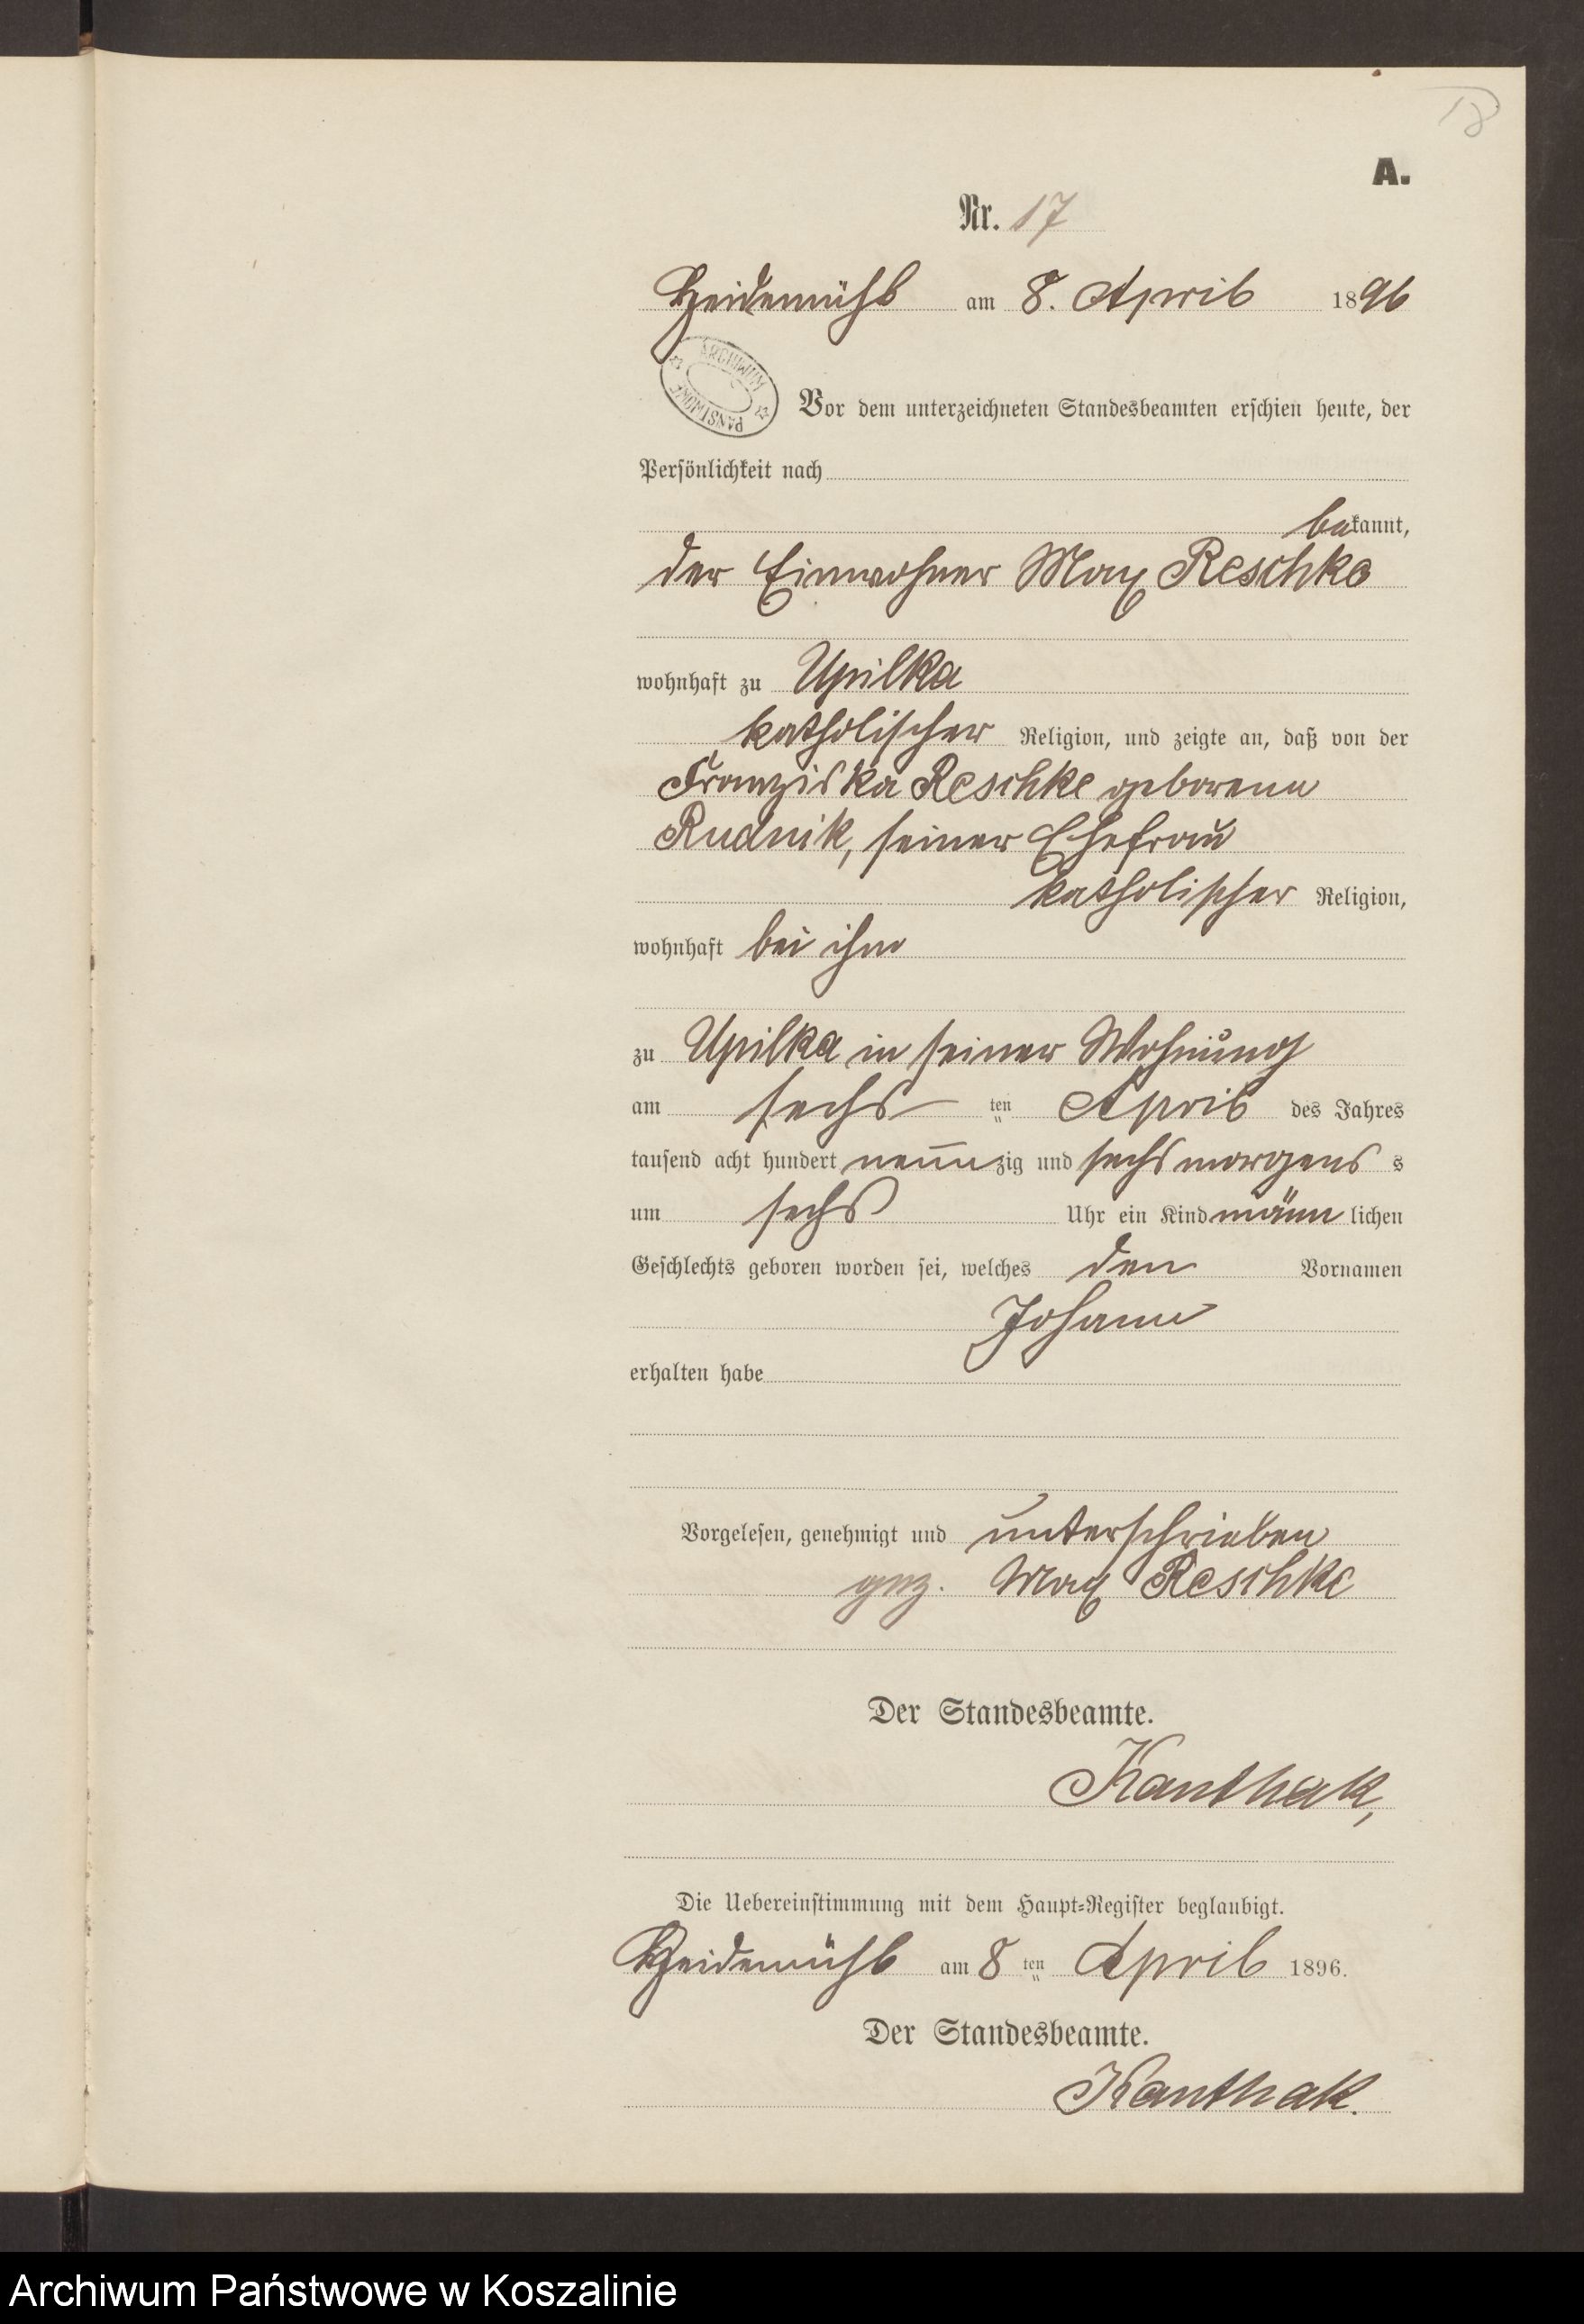 18
A.
Nr. 17
Heidemühl am 8. April 1896
ARCHIWUM PAŃSTWOWE
Vor dem unterzeichneten Standesbeamten erschien heute, der
Persönlichkeit nach
bekannt,
der Einwohner Max Reschke
wohnhaft zu Upilka
katholischer Religion, und zeigte an, daß von der
Franziska Reschke geborene
Rudnik, seiner Ehefrau
katholischer Religion,
wohnhaft bei ihm
zu Upilka in seiner Wohnung
am sechs ten April des Jahres
tausend acht hundert neunzig und sechs morgens s
um sechs Uhr ein Kind männlichen
Geschlechts geboren worden sei, welches den Vornamen
Johann
erhalten habe
Vorgelesen, genehmigt und unterschrieben
gez. Max Reschke
Der Standesbeamte.
Kanthak,
Die Uebereinstimmung mit dem Haupt-Register beglaubigt.
Heidemühl am 8 ten April 1896.
Der Standesbeamte.
Kanthak.
Archiwum Państwowe w Koszalinie